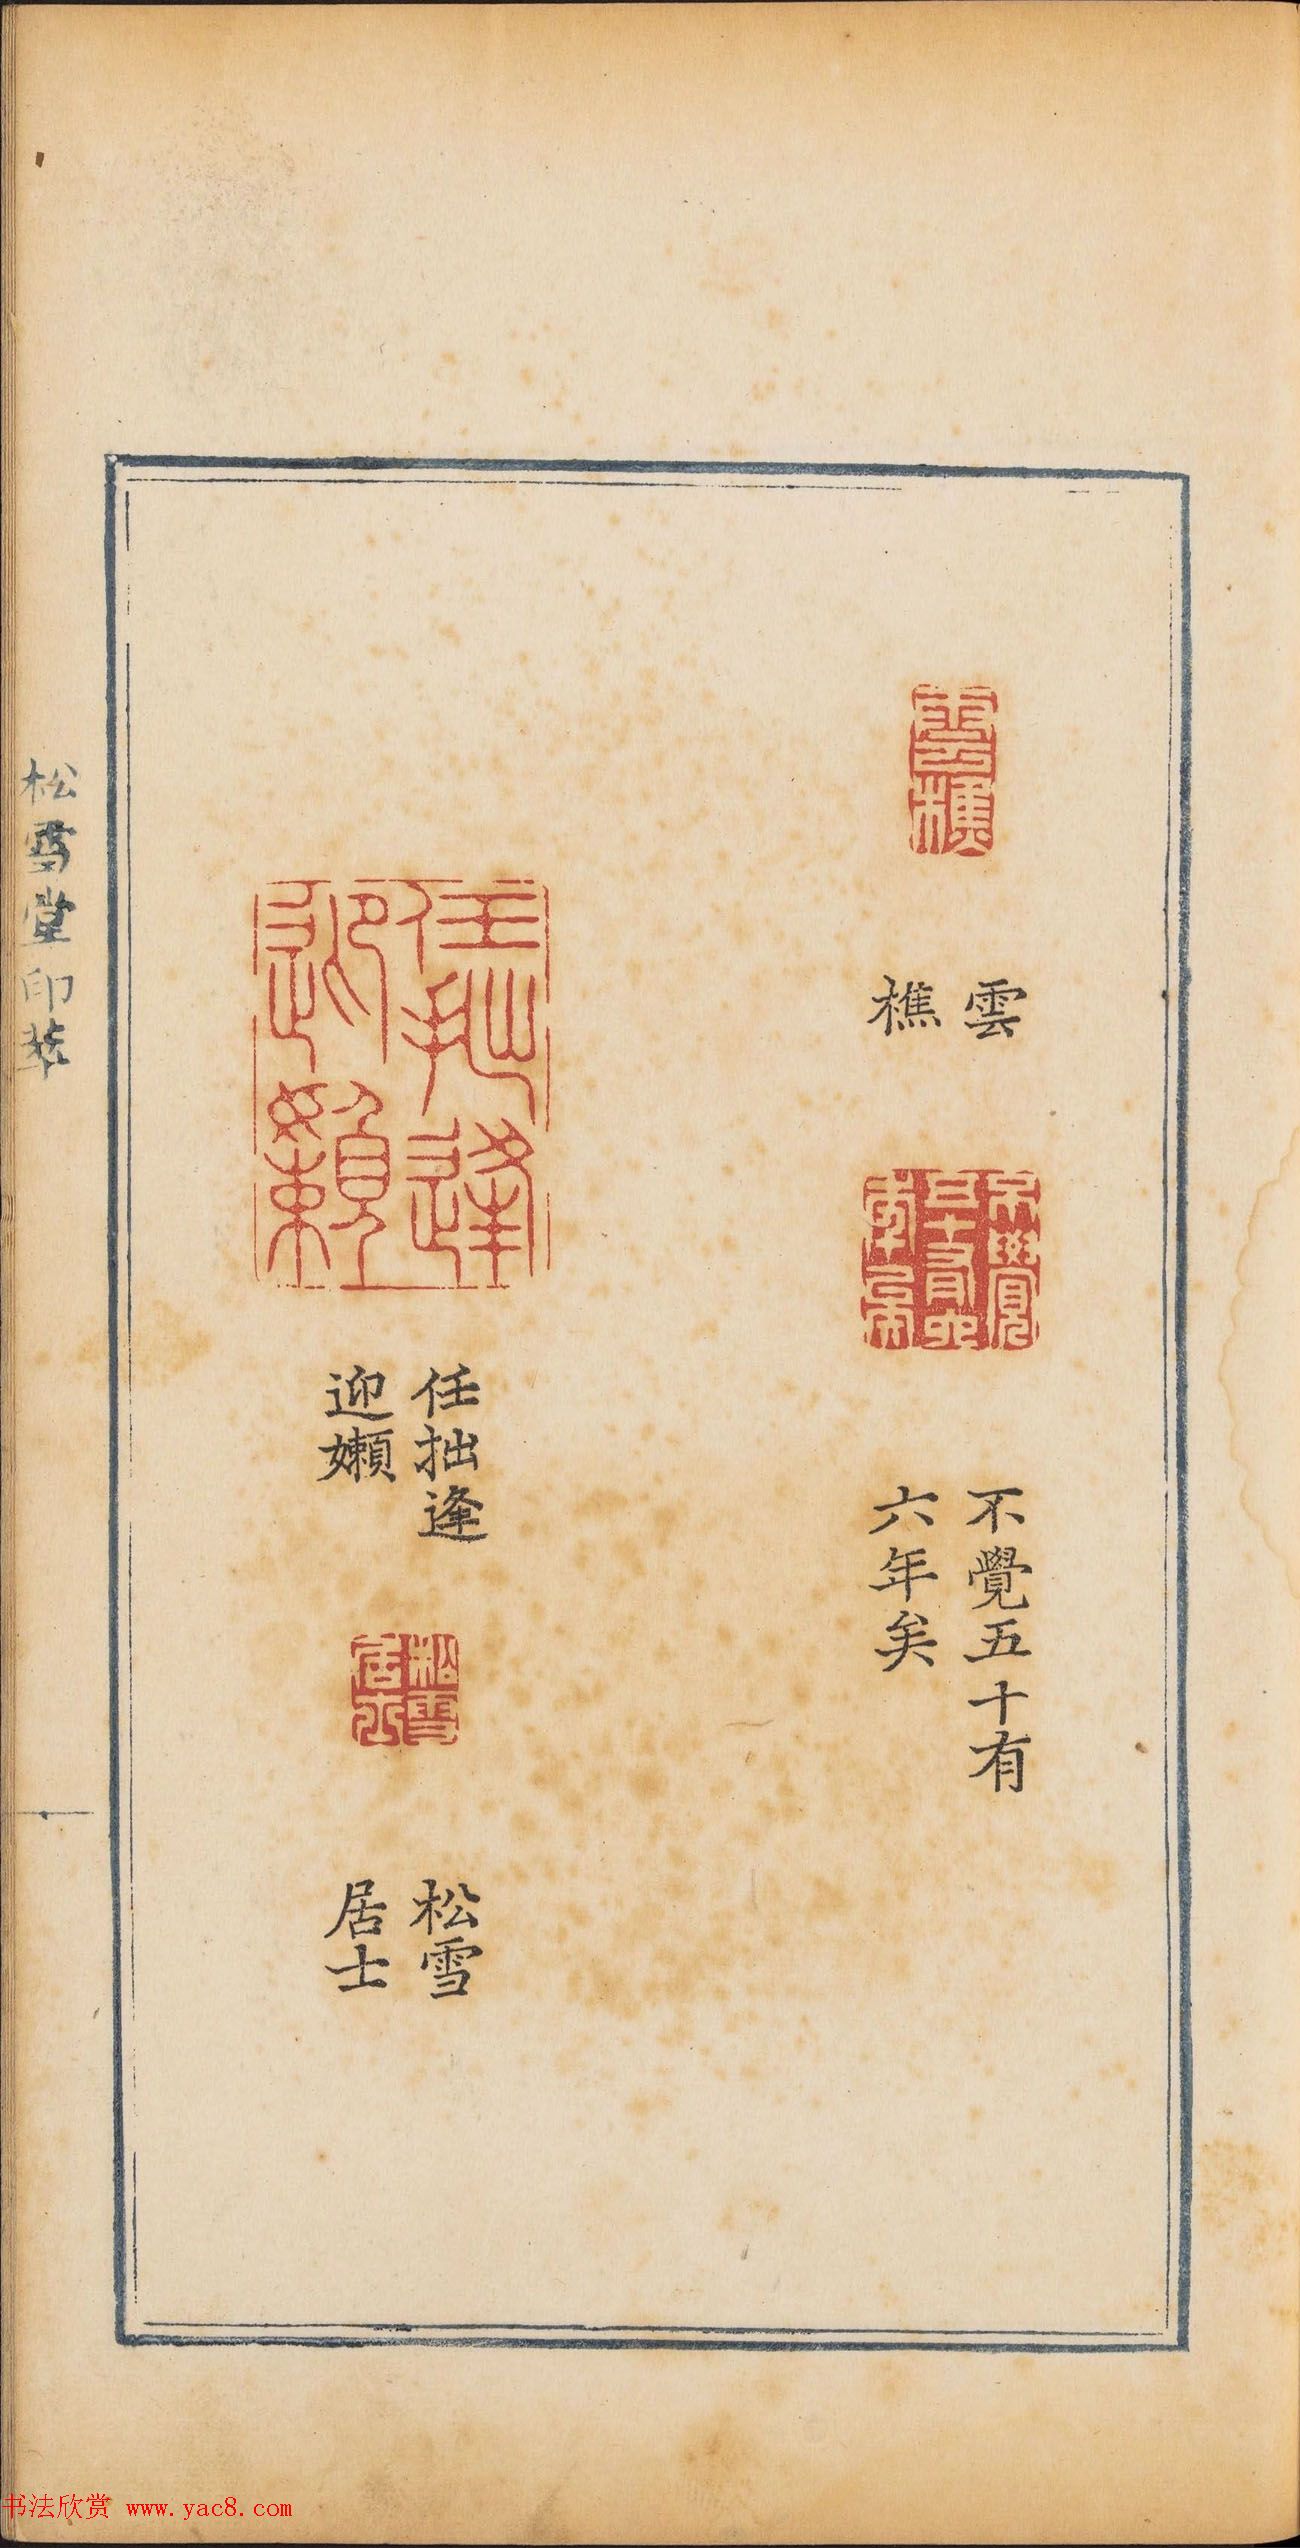 雲樵
雲
樵
不覺五十有
六年矣
任拙逢
迎嬾
任拙逢
迎嬾
松雪
居士
松雪
居士
松雪堂印萃
书法欣赏 www.yac8.com